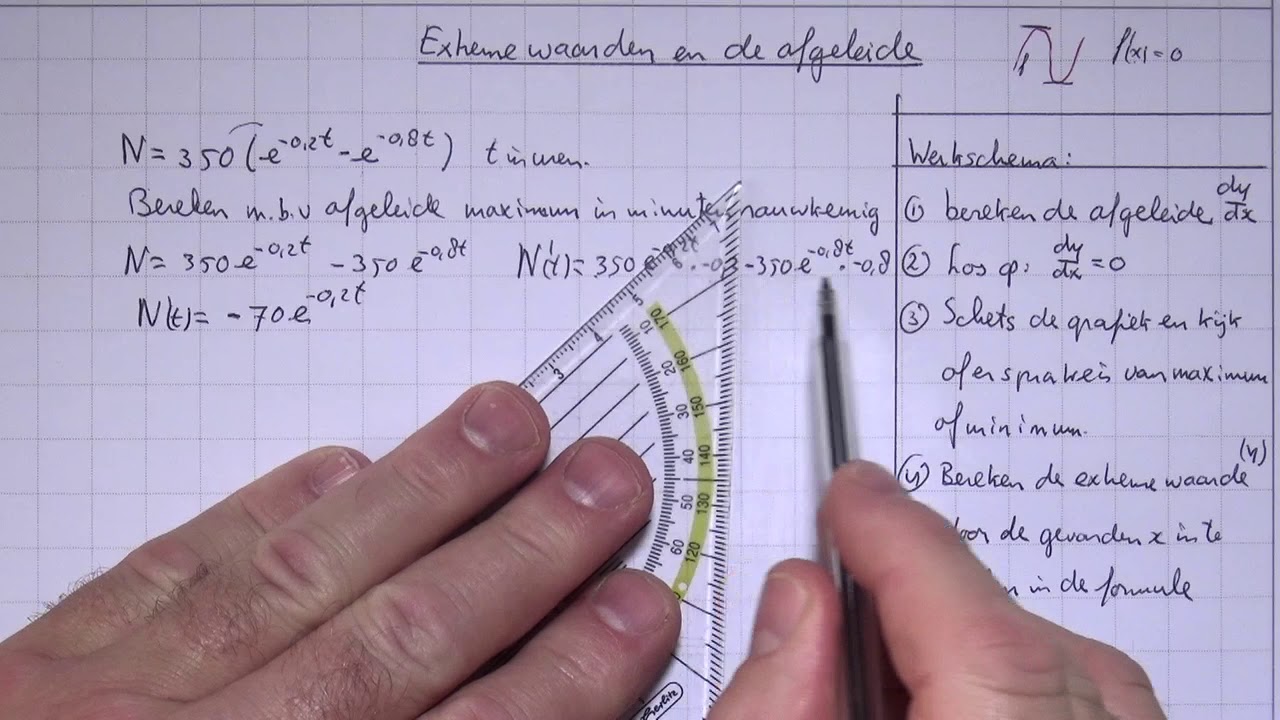 Extreme waarden en de afgeleide
f'(x) = 0
N = 350 (e^-0,2t - e^-0,8t) t in uren.
Bereken m.b.v afgeleide maximum in minuten nauwkeurig
N = 350 e^-0,2t - 350 e^-0,8t
N'(t) = 350 -350 e^-0,8t · -0,8
N'(t) = - 70 e^-0,2t
Werkschema:
① bereken de afgeleide dy/dx
② Los op: dy/dx = 0
③ Schets de grafiek en kijk
of er sprake is van maximum
of minimum.
④ Bereken de extreme waarde (y)
door de gevonden x in te
in de formule
3 4 5 6 7
10 20 30 40 50 60
170 160 150 140 130 120